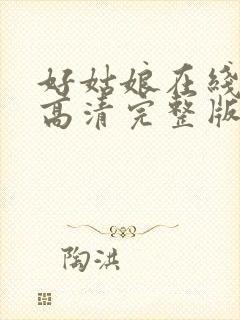 好姑娘在线
高清完整版
陶洪